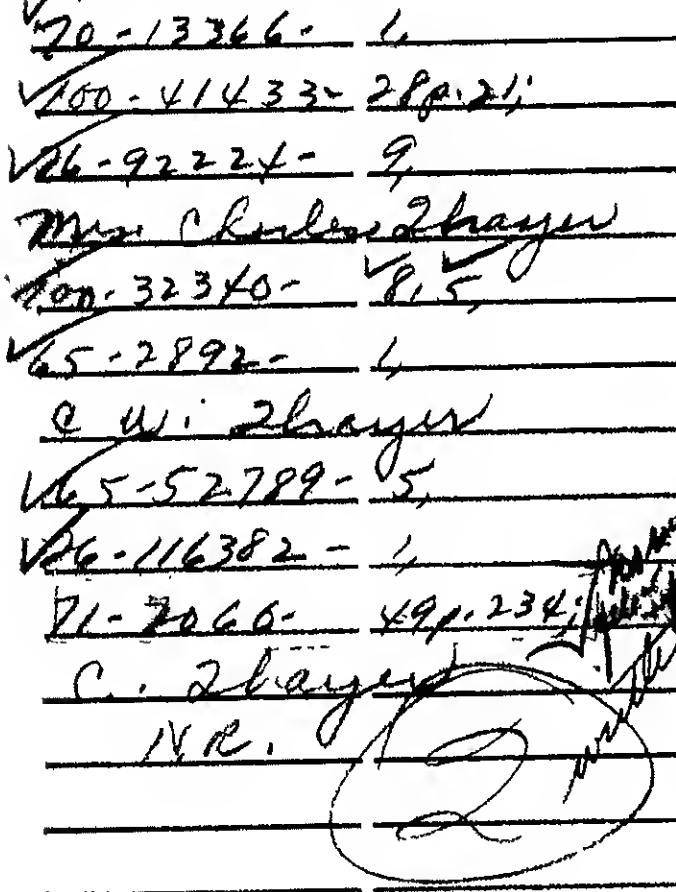 70-13366- 1,
100-41433- 28p.21;
26-92224- 9,
Mrs. Charles Thayer
100-32340- 8, 5,
65-2892- 1,
C W. Thayer
65-52789- 5,
26-116382- 1,
71-2066- 49p.234;
C. Thayer
N.R.
2